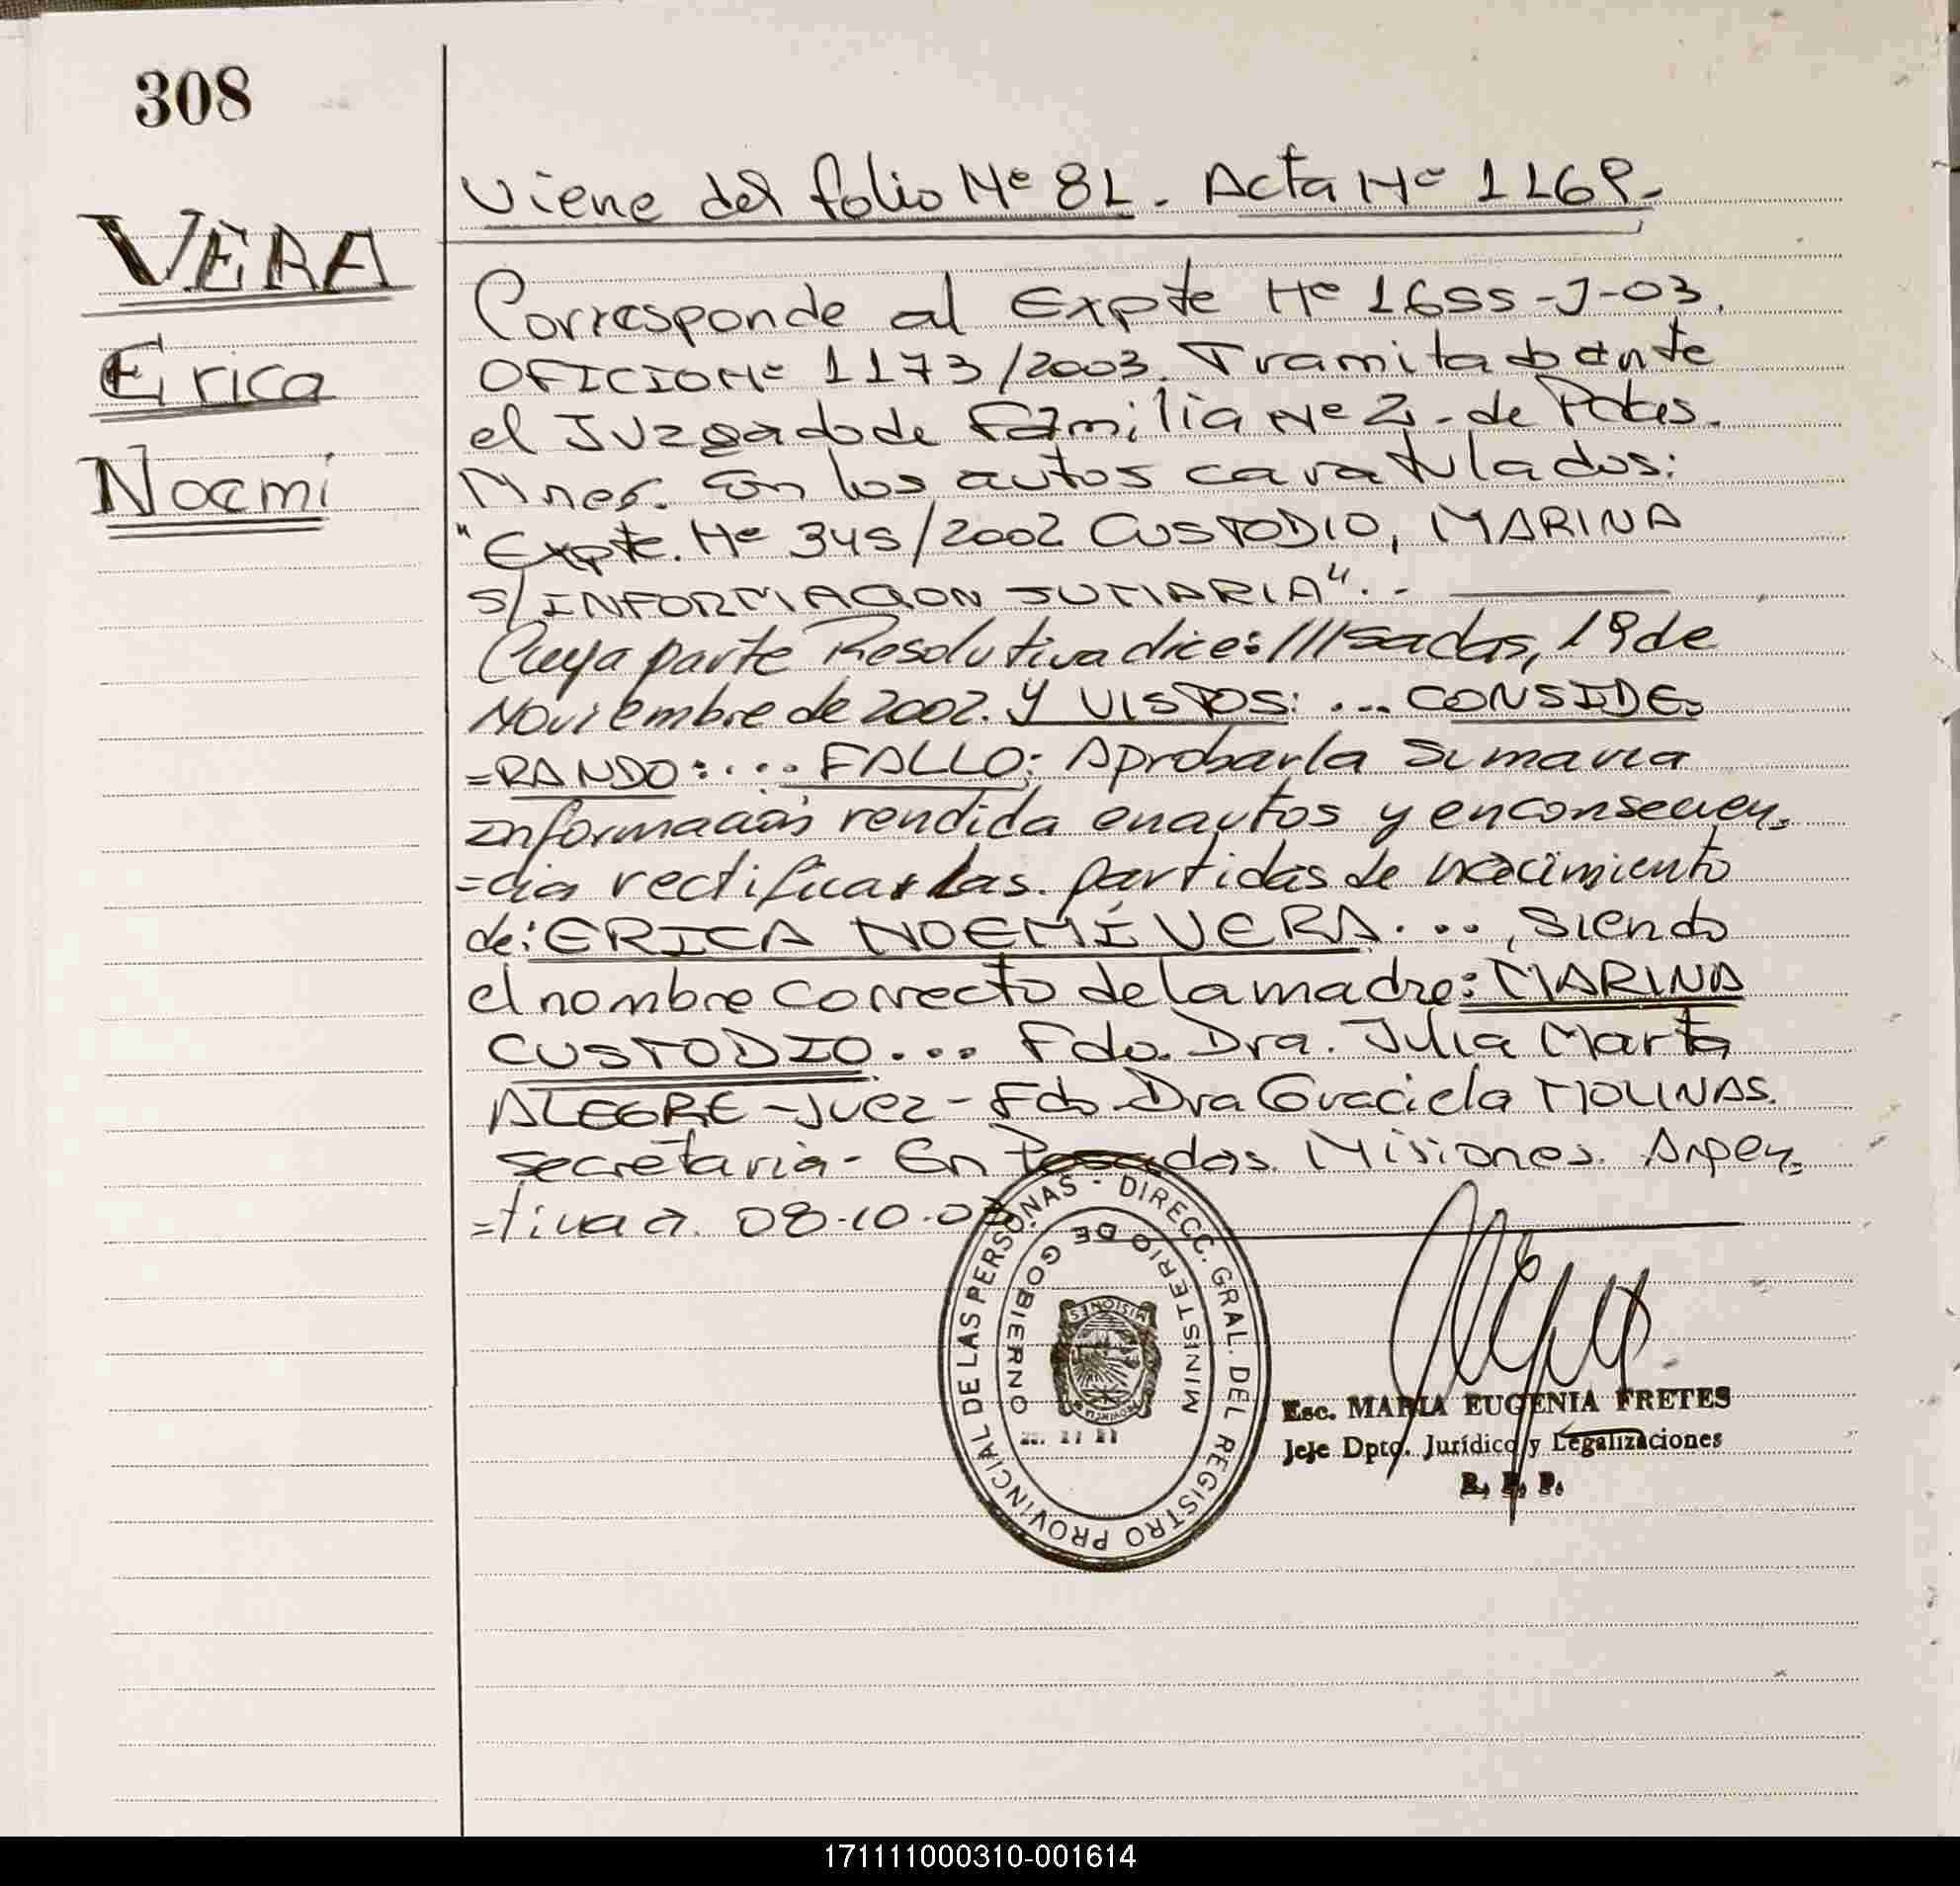 308
VERA
Erica
Noemi
Viene del folio Nº 81. Acta Nº 1169.
Corresponde al Expte Nº 1655-J-03.
OFICIO Nº 1173/2003. Tramitado ante
el Juzgado de Familia Nº 2 - de Pdas.
Mnes. En los autos caratulados:
"Expte. Nº 345/2002 CUSTODIO, MARINA
S/INFORMACION SUMARIA". -
Cuya parte Resolutiva dice: ///sadas, 19 de
Noviembre de 2002. Y VISTOS: ... CONSIDE=
=RANDO: ... FALLO: Aprobar la Sumaria
Información rendida en autos y en consecuen=
=cia rectificar las partidas de nacimiento
de: ERICA NOEMÍ VERA ..., siendo
el nombre correcto de la madre: MARINA
CUSTODIO ... Fdo. Dra. Julia Marta
ALEGRE - Juez - Fdo Dra Graciela MOLINAS.
Secretaria - En Posadas Misiones. Argen=
=tina a. 08-10-03
DIRECC. GRAL. DEL REGISTRO PROVINCIAL DE LAS PERSONAS -
MINISTERIO DE GOBIERNO
MISIONES
Esc. MARIA EUGENIA FRETES
Jefe Dpto. Jurídico y Legalizaciones
R. P. P.
171111000310-001614